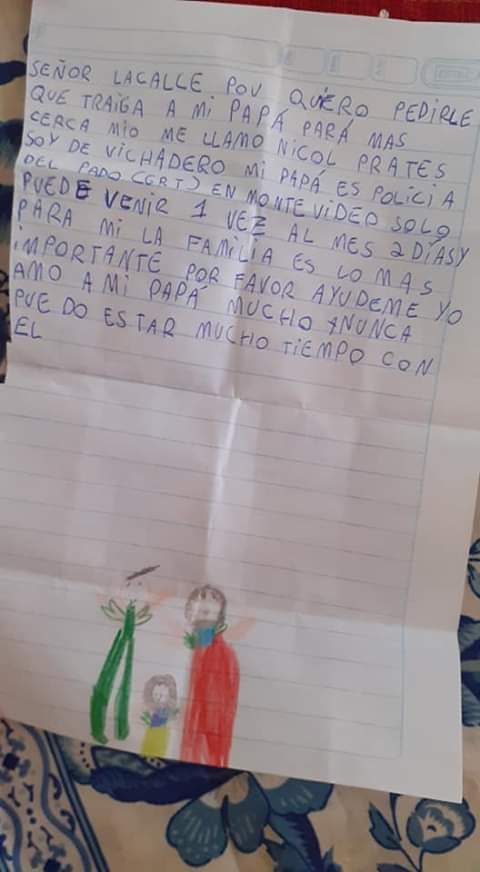 SEÑOR LACALLE POU QUIERO PEDIRLE
QUE TRAIGA A Mi PAPÁ PARÁ MAS
CERCA MIO ME LLAMO NICOL PRATES
SOY DE VICHADERO Mi PAPÁ ES POLICIA
DEL PADO (GRT) EN MONTEVIDEO SOLO
PUEDE VENIR 1 VEZ AL MES 2 DÍAS Y
PARA Mi LA FAMILIA ES LO MAS
iMPORTANTE POR FAVOR AYUDEME YO
AMO A Mi PAPÁ MUCHO Y NUNCA
PUEDO ESTAR MUCHO TiEMPO CON
EL